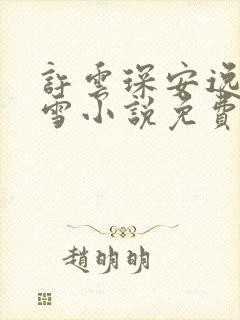 許雲琛安逸
雪小說免費
趙明明